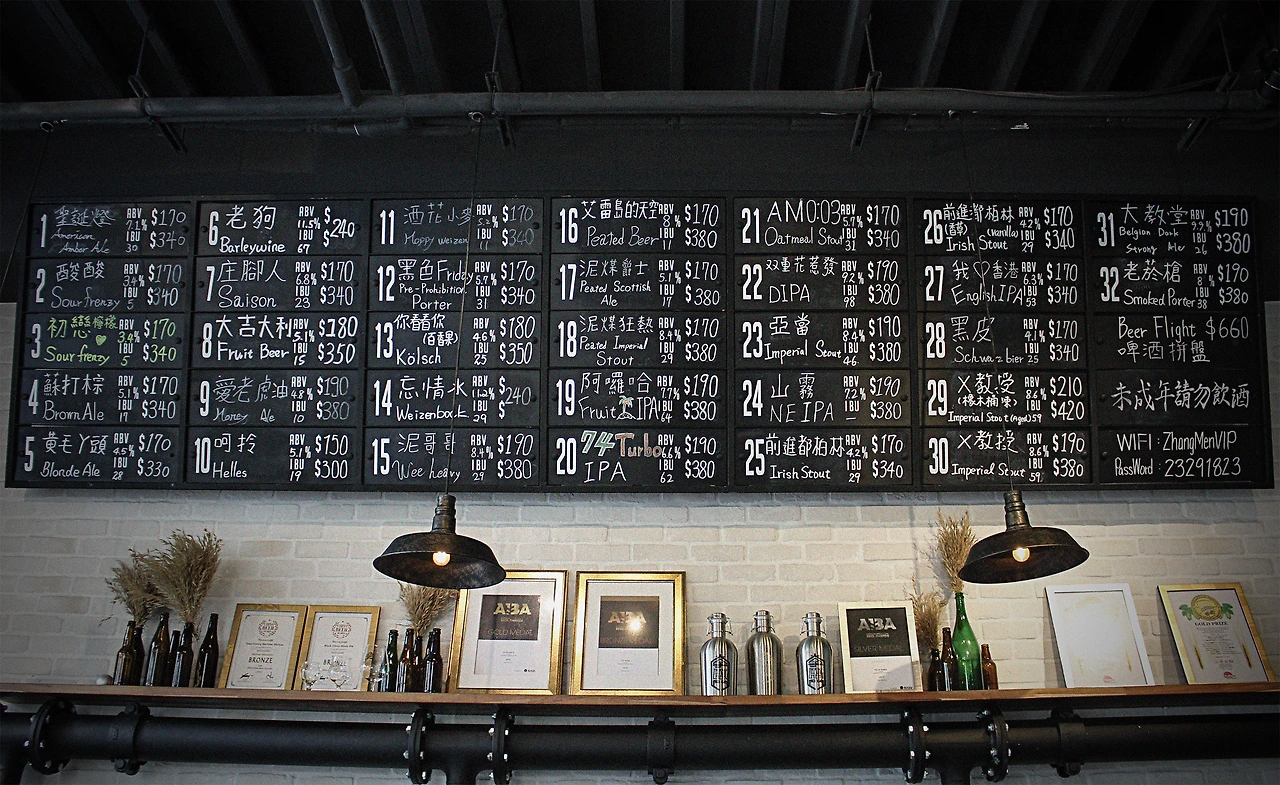 1 聖誕燈 ABV 7.1% $170
American Amber Ale IBU 30 $340
2 酸酸 ABV 3.4% $170
Sour frenzy IBU 5 $340
3 初戀檸檬 ABV 3.4% $170
Sour frenzy IBU 5 $340
4 蘇打棕 ABV 5.1% $170
Brown Ale IBU 11 $340
5 黃毛丫頭 ABV 4.5% $170
Blonde Ale IBU 28 $330
6 老狗 ABV 11.5% $240
Barleywine IBU 67
7 庄腳人 ABV 6.8% $170
Saison IBU 23 $340
8 大吉大利 ABV 5.1% $180
Fruit Beer IBU 15 $350
9 愛老虎油 ABV 4.8% $190
Honey Ale IBU 10 $380
10 呵拎 ABV 5.1% $150
Helles IBU 19 $300
11 酒花小麥 ABV 5.2% $170
Hoppy weizen IBU 11 $340
12 黑色Friday ABV 5.7% $170
Pre-Prohibition Porter IBU 31 $340
13 你看看你 ABV 4.6% $180
Kölsch IBU 25 $350
14 忘情水 ABV 11.2% $240
Weizenbock IBU 29
15 泥哥哥 ABV 8.4% $190
Wee heavy IBU 29 $380
16 艾雷島的天空 ABV 8% $170
Peated Beer IBU 11 $380
17 泥煤爵士 ABV 5.1% $170
Peated Scottish Ale IBU 17 $380
18 泥煤狂熱 ABV 8.4% $170
Peated Imperial Stout IBU 29 $380
19 阿囉哈 ABV 7.7% $190
Fruit IPA IBU 64 $380
20 74 Turbo ABV 6.6% $190
IPA IBU 62 $380
21 AM0:03 ABV $170
Oatmeal Stout IBU 31 $340
22 双重花惹發 ABV 7.2% $190
DIPA IBU 98 $380
23 亞當 ABV 8.4% $190
Imperial Stout IBU 46 $380
24 山霧 ABV 7.2% $190
NE IPA IBU 33 $380
25 前進都柏林 ABV 4.2% $170
Irish Stout IBU 29 $340
26 前進都柏林 ABV 4.2% $170
(Vanilla)
Irish Stout IBU 29 $340
27 我♡香港 ABV 6.3% $170
English IPA IBU 53 $340
28 黑皮 ABV 4.1% $170
Schwarzbier IBU 25 $340
29 X教授 ABV 8.6% $210
(橡木桶陳)
Imperial Stout (Aged) IBU 59 $420
30 X教授 ABV 8.6% $190
Imperial Stout IBU 59 $380
31 大教堂 ABV 9.9% $190
Belgian Dark Strong Ale IBU 26 $380
32 老菸槍 ABV 8% $190
Smoked Porter IBU 38 $380
Beer Flight $660
啤酒拼盤
未成年請勿飲酒
WIFI : ZhangMenVIP
PassWord : 23291823
BRONZE
BRONZE
AIBA
GOLD MEDAL
AIBA
AIBA
SILVER MEDAL
GOLD PRIZE